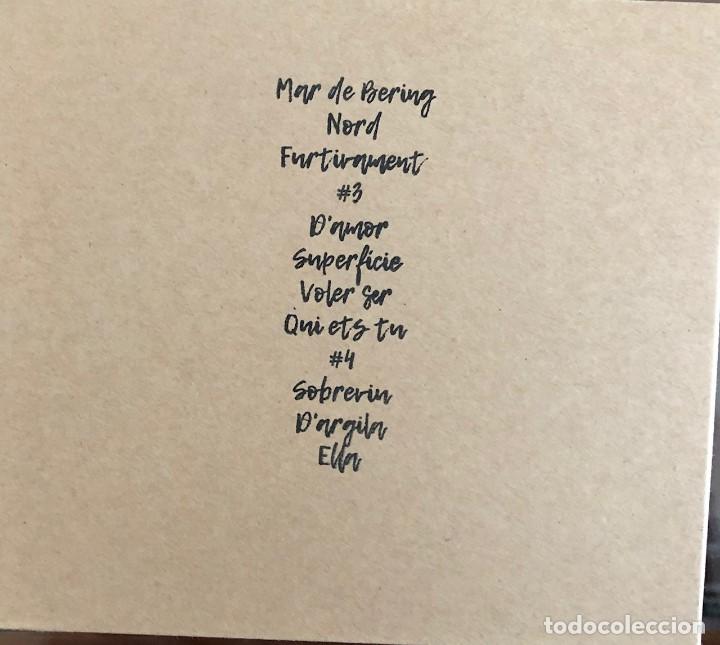 Mar de Bering
Nord
Furtivament
#3
D'amor
Superfície
Voler ser
Qui ets tu
#4
Sobreviu
D'argila
Ella
todocoleccion